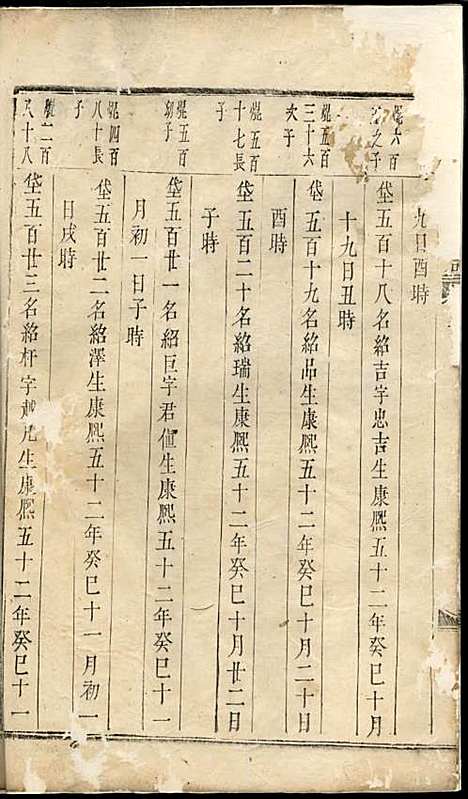 九日酉時
焜六百
之子
垡五百十八名紹吉字忠吉生康熙五十二年癸巳十月
十九日丑時
焜五百
三十六
次子
垡五百十九名紹品生康熙五十二年癸巳十月二十日
酉時
焜五百
十七長
子
垡五百二十名紹瑞生康熙五十二年癸巳十月廿二日
子時
焜五百
幼子
垡五百廿一名紹巨字君値生康熙五十二年癸巳十一
月初一日子時
焜四百
八十長
子
垡五百廿二名紹澤生康熙五十二年癸巳十一月初一
日戌時
焜二百
八十八
垡五百廿三名紹杆字越凡生康熙五十二年癸巳十一